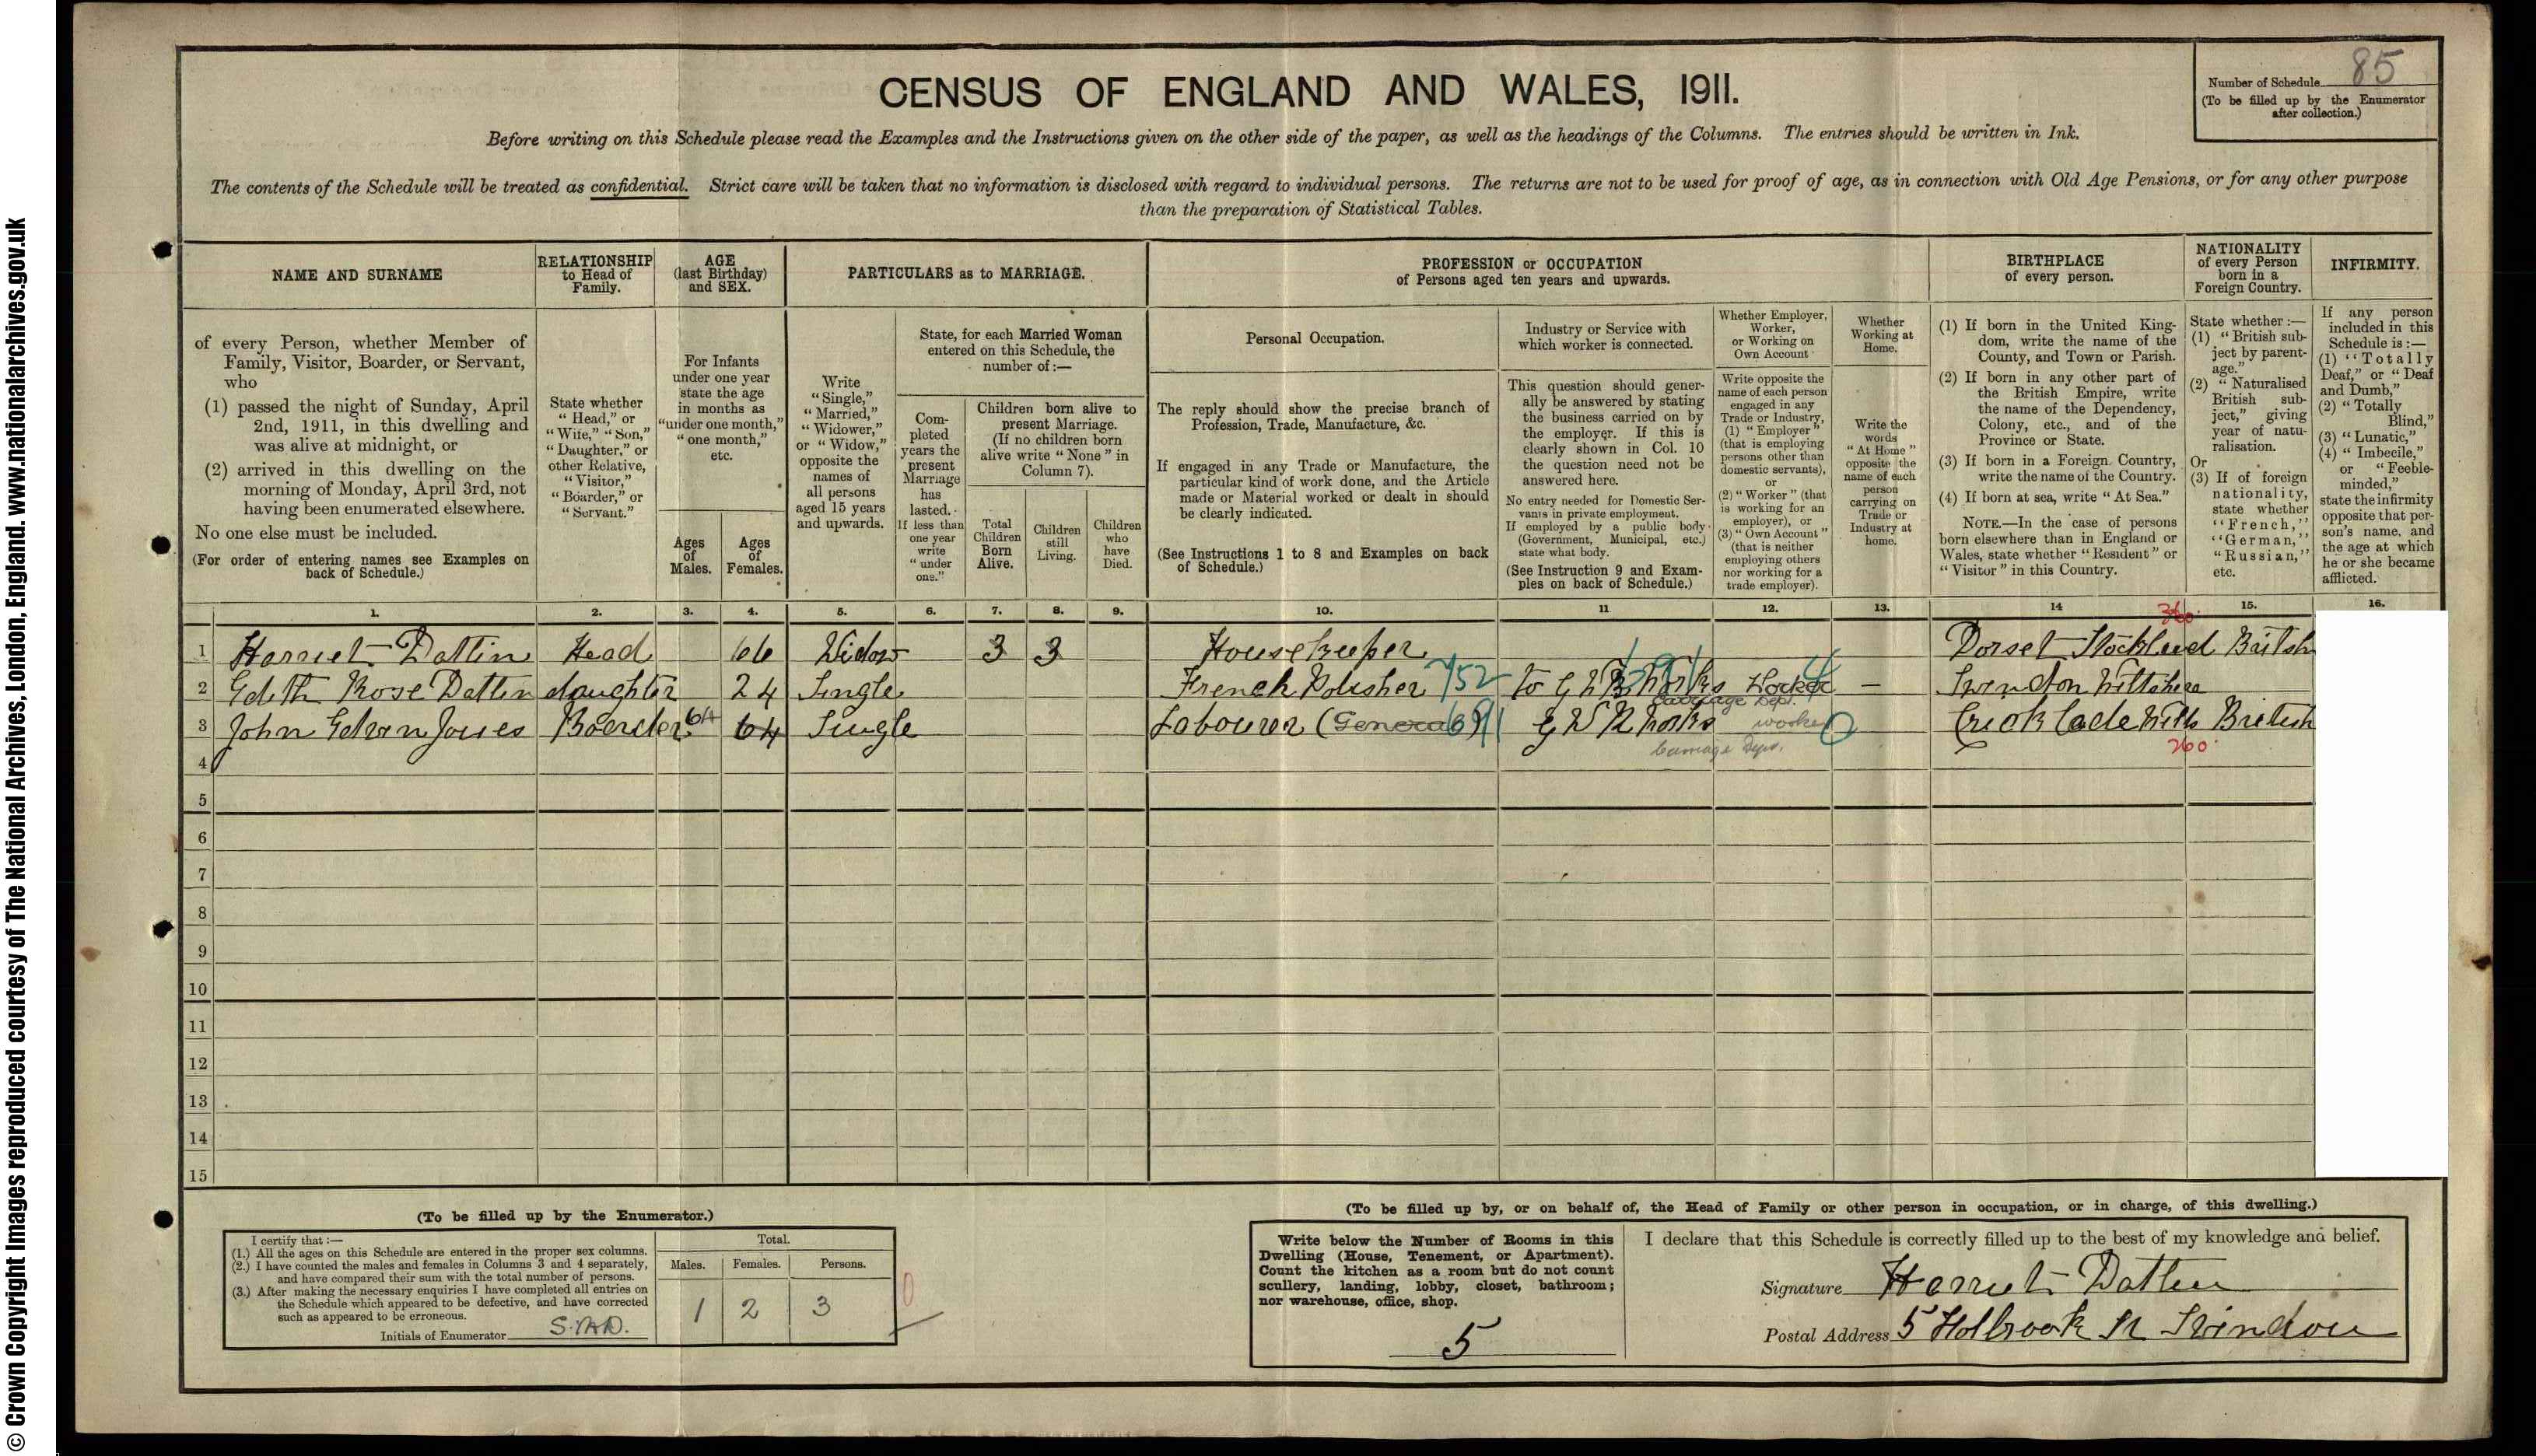 © Crown Copyright Images reproduced courtesy of The National Archives, London, England. www.nationalarchives.gov.uk
CENSUS OF ENGLAND AND WALES, 1911.
Number of Schedule 85
(To be filled up by the Enumerator
after collection.)
Before writing on this Schedule please read the Examples and the Instructions given on the other side of the paper, as well as the headings of the Columns. The entries should be written in Ink.
The contents of the Schedule will be treated as confidential. Strict care will be taken that no information is disclosed with regard to individual persons. The returns are not to be used for proof of age, as in connection with Old Age Pensions, or for any other purpose
than the preparation of Statistical Tables.
NAME AND SURNAME
of every Person, whether Member of
Family, Visitor, Boarder, or Servant,
who
(1) passed the night of Sunday, April
2nd, 1911, in this dwelling and
was alive at midnight, or
(2) arrived in this dwelling on the
morning of Monday, April 3rd, not
having been enumerated elsewhere.
No one else must be included.
(For order of entering names see Examples on
back of Schedule.)
RELATIONSHIP
to Head of
Family.
State whether
"Head," or
"Wife," "Son,"
"Daughter," or
other Relative,
"Visitor,"
"Boarder," or
"Servant."
AGE
(last Birthday)
and SEX.
For Infants
under one year
state the age
in months as
"under one month,"
"one month,"
etc.
Ages
of
Males.
Ages
of
Females.
PARTICULARS as to MARRIAGE.
Write
"Single,"
"Married,"
"Widower,"
or "Widow,"
opposite the
names of
all persons
aged 15 years
and upwards.
State, for each Married Woman
entered on this Schedule, the
number of:—
Com-
pleted
years the
present
Marriage
has
lasted.
If less than
one year
write
"under
one."
Children born alive to
present Marriage.
(If no children born
alive write "None" in
Column 7).
Total
Children
Born
Alive.
Children
still
Living.
Children
who
have
Died.
PROFESSION or OCCUPATION
of Persons aged ten years and upwards.
Personal Occupation.
The reply should show the precise branch of
Profession, Trade, Manufacture, &c.
If engaged in any Trade or Manufacture, the
particular kind of work done, and the Article
made or Material worked or dealt in should
be clearly indicated.
(See Instructions 1 to 8 and Examples on back
of Schedule.)
Industry or Service with
which worker is connected.
This question should gener-
ally be answered by stating
the business carried on by
the employer. If this is
clearly shown in Col. 10
the question need not be
answered here.
No entry needed for Domestic Ser-
vants in private employment.
If employed by a public body
(Government, Municipal, etc.)
state what body.
(See Instruction 9 and Exam-
ples on back of Schedule.)
Whether Employer,
Worker,
or Working on
Own Account
Write opposite the
name of each person
engaged in any
Trade or Industry,
(1) "Employer"
(that is employing
persons other than
domestic servants),
or
(2) "Worker" (that
is working for an
employer), or
(3) "Own Account"
(that is neither
employing others
nor working for a
trade employer).
Whether
Working at
Home.
Write the
words
"At Home"
opposite the
name of each
person
carrying on
Trade or
Industry at
home.
BIRTHPLACE
of every person.
(1) If born in the United King-
dom, write the name of the
County, and Town or Parish.
(2) If born in any other part of
the British Empire, write
the name of the Dependency,
Colony, etc., and of the
Province or State.
(3) If born in a Foreign Country,
write the name of the Country.
(4) If born at sea, write "At Sea."
NOTE.—In the case of persons
born elsewhere than in England or
Wales, state whether "Resident" or
"Visitor" in this Country.
NATIONALITY
of every Person
born in a
Foreign Country.
State whether :—
(1) "British sub-
ject by parent-
age."
(2) "Naturalised
British sub-
ject," giving
year of natu-
ralisation.
Or
(3) If of foreign
nationality,
state whether
"French,"
"German,"
"Russian,"
etc.
INFIRMITY.
If any person
included in this
Schedule is :—
(1) "Totally
Deaf," or "Deaf
and Dumb,"
(2) "Totally
Blind,"
(3) "Lunatic,"
(4) "Imbecile,"
or "Feeble-
minded,"
state the infirmity
opposite that per-
son's name, and
the age at which
he or she became
afflicted.
1. 2. 3. 4. 5. 6. 7. 8. 9. 10. 11 12. 13. 14 15. 16.
360
1 Harriet Dattin Head 66 Widow 3 3 Housekeeper Dorset Stockland British
2 Edith Rose Dattin daughter 24 Single French Polisher 752 to G W R Works Worker 4 — Swindon Wiltshire
Carriage Dept.
3 John Edwin Jones Boarder 64 64 Single Labourer (General) 691 G W R Works worker 0 Cricklade Wilts British
Carriage Dept. 260
4
5
6
7
8
9
10
11
12
13
14
15
(To be filled up by the Enumerator.)
I certify that :—
(1.) All the ages on this Schedule are entered in the proper sex columns.
(2.) I have counted the males and females in Columns 3 and 4 separately,
and have compared their sum with the total number of persons.
(3.) After making the necessary enquiries I have completed all entries on
the Schedule which appeared to be defective, and have corrected
such as appeared to be erroneous.
Initials of Enumerator
Total.
Males. Females. Persons.
1 2 3
0
(To be filled up by, or on behalf of, the Head of Family or other person in occupation, or in charge, of this dwelling.)
Write below the Number of Rooms in this
Dwelling (House, Tenement, or Apartment).
Count the kitchen as a room but do not count
scullery, landing, lobby, closet, bathroom;
nor warehouse, office, shop.
5
I declare that this Schedule is correctly filled up to the best of my knowledge and belief.
Signature Harriet Dattin
Postal Address 5 Holbrook St Swindon